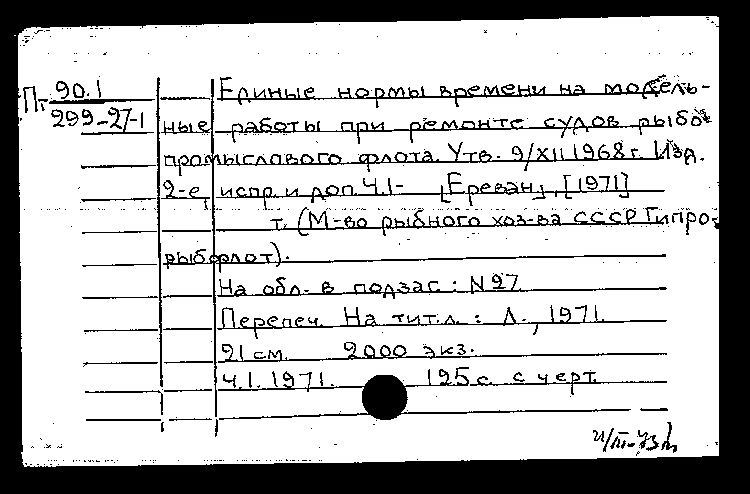 Пт 90.1
299-27-1
Единые нормы времени на модель-
ные работы при ремонте судов рыбо
промыслового флота. Утв. 9/XII 1968 г. Изд.
2-е, испр. и доп. Ч.1- [Ереван], [1971]
т. (М-во рыбного хоз-ва СССР Гипро-
рыбфлот).
На обл. в подзаг: N 27
Перепеч. На тит.л.: Л., 1971.
21 см. 2000 экз.
Ч.1. 1971. 125 с. с черт.